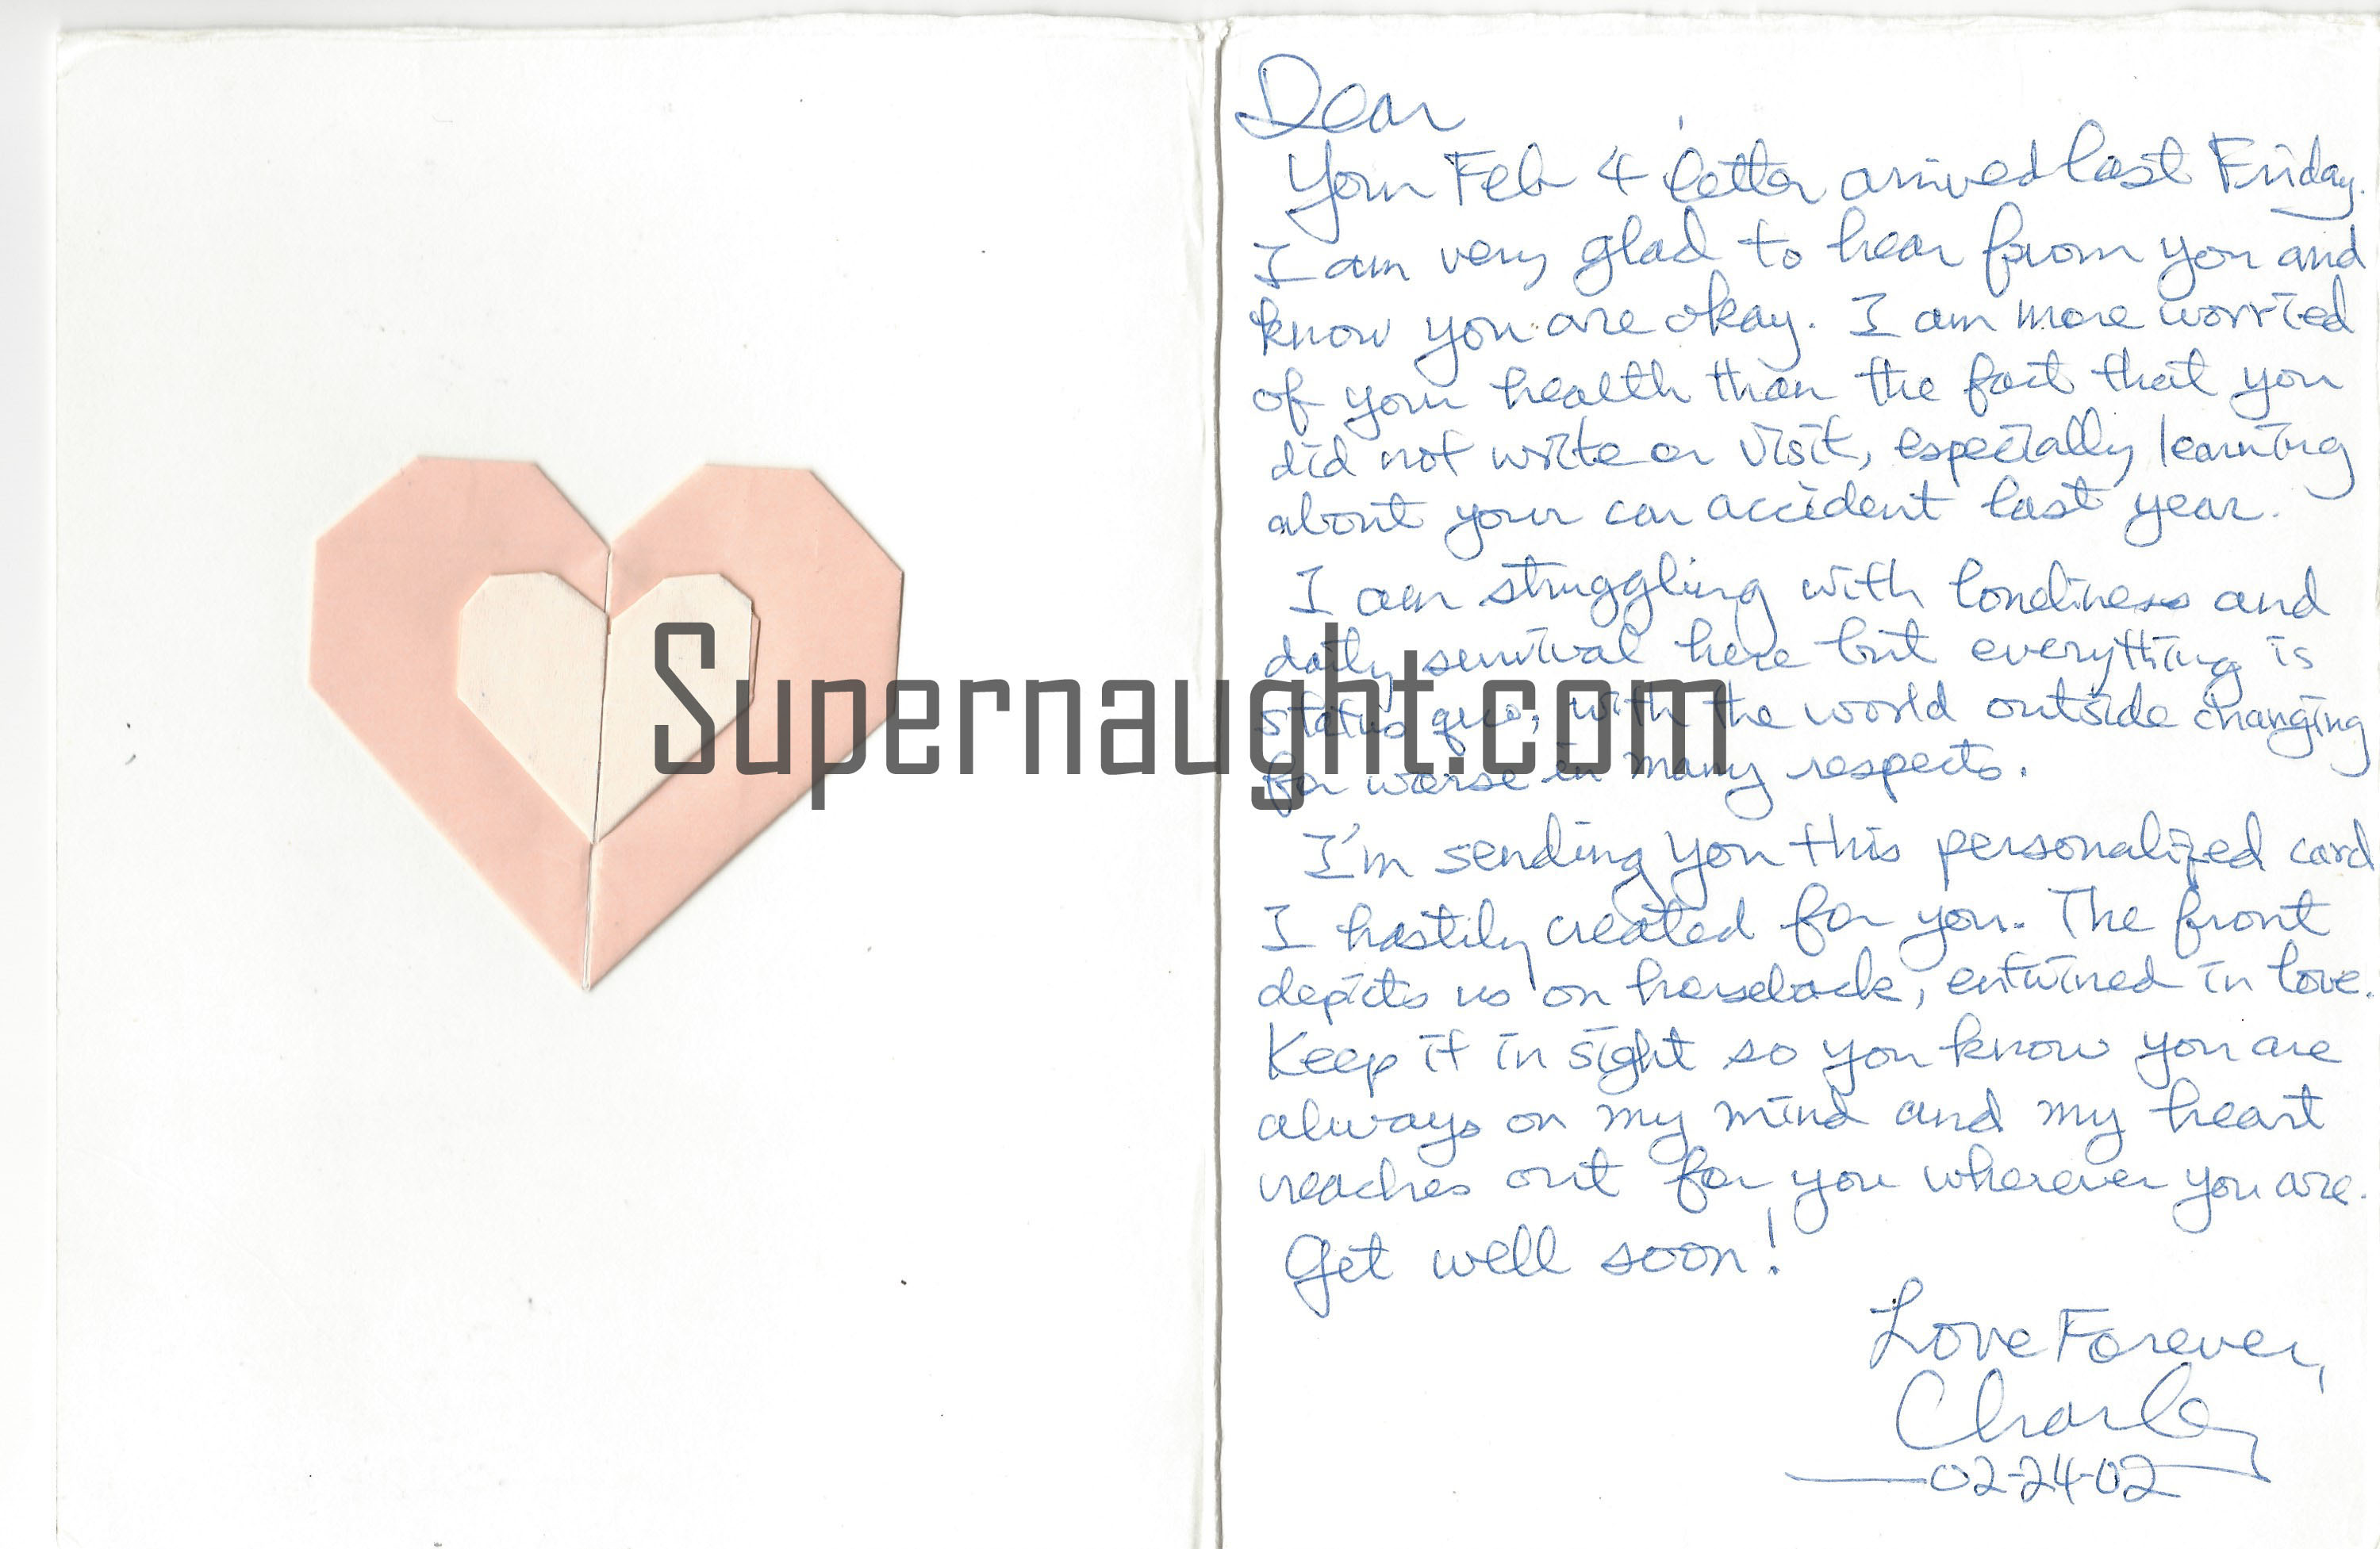 Dear
Your Feb 4 letter arrived last Friday.
I am very glad to hear from you and
know you are okay. I am more worried
of your health than the fact that you
did not write or visit, especially learning
about your car accident last year.
I am struggling with loneliness and
daily survival here but everything is
status quo, with the world outside changing
for worse in many respects.
I'm sending you this personalized card
I hastily created for you. The front
depicts us on horseback, entwined in love.
Keep it in sight so you know you are
always on my mind and my heart
reaches out for you wherever you are.
Get well soon!
Love Forever,
Charley
02-24-02
Supernaught.com